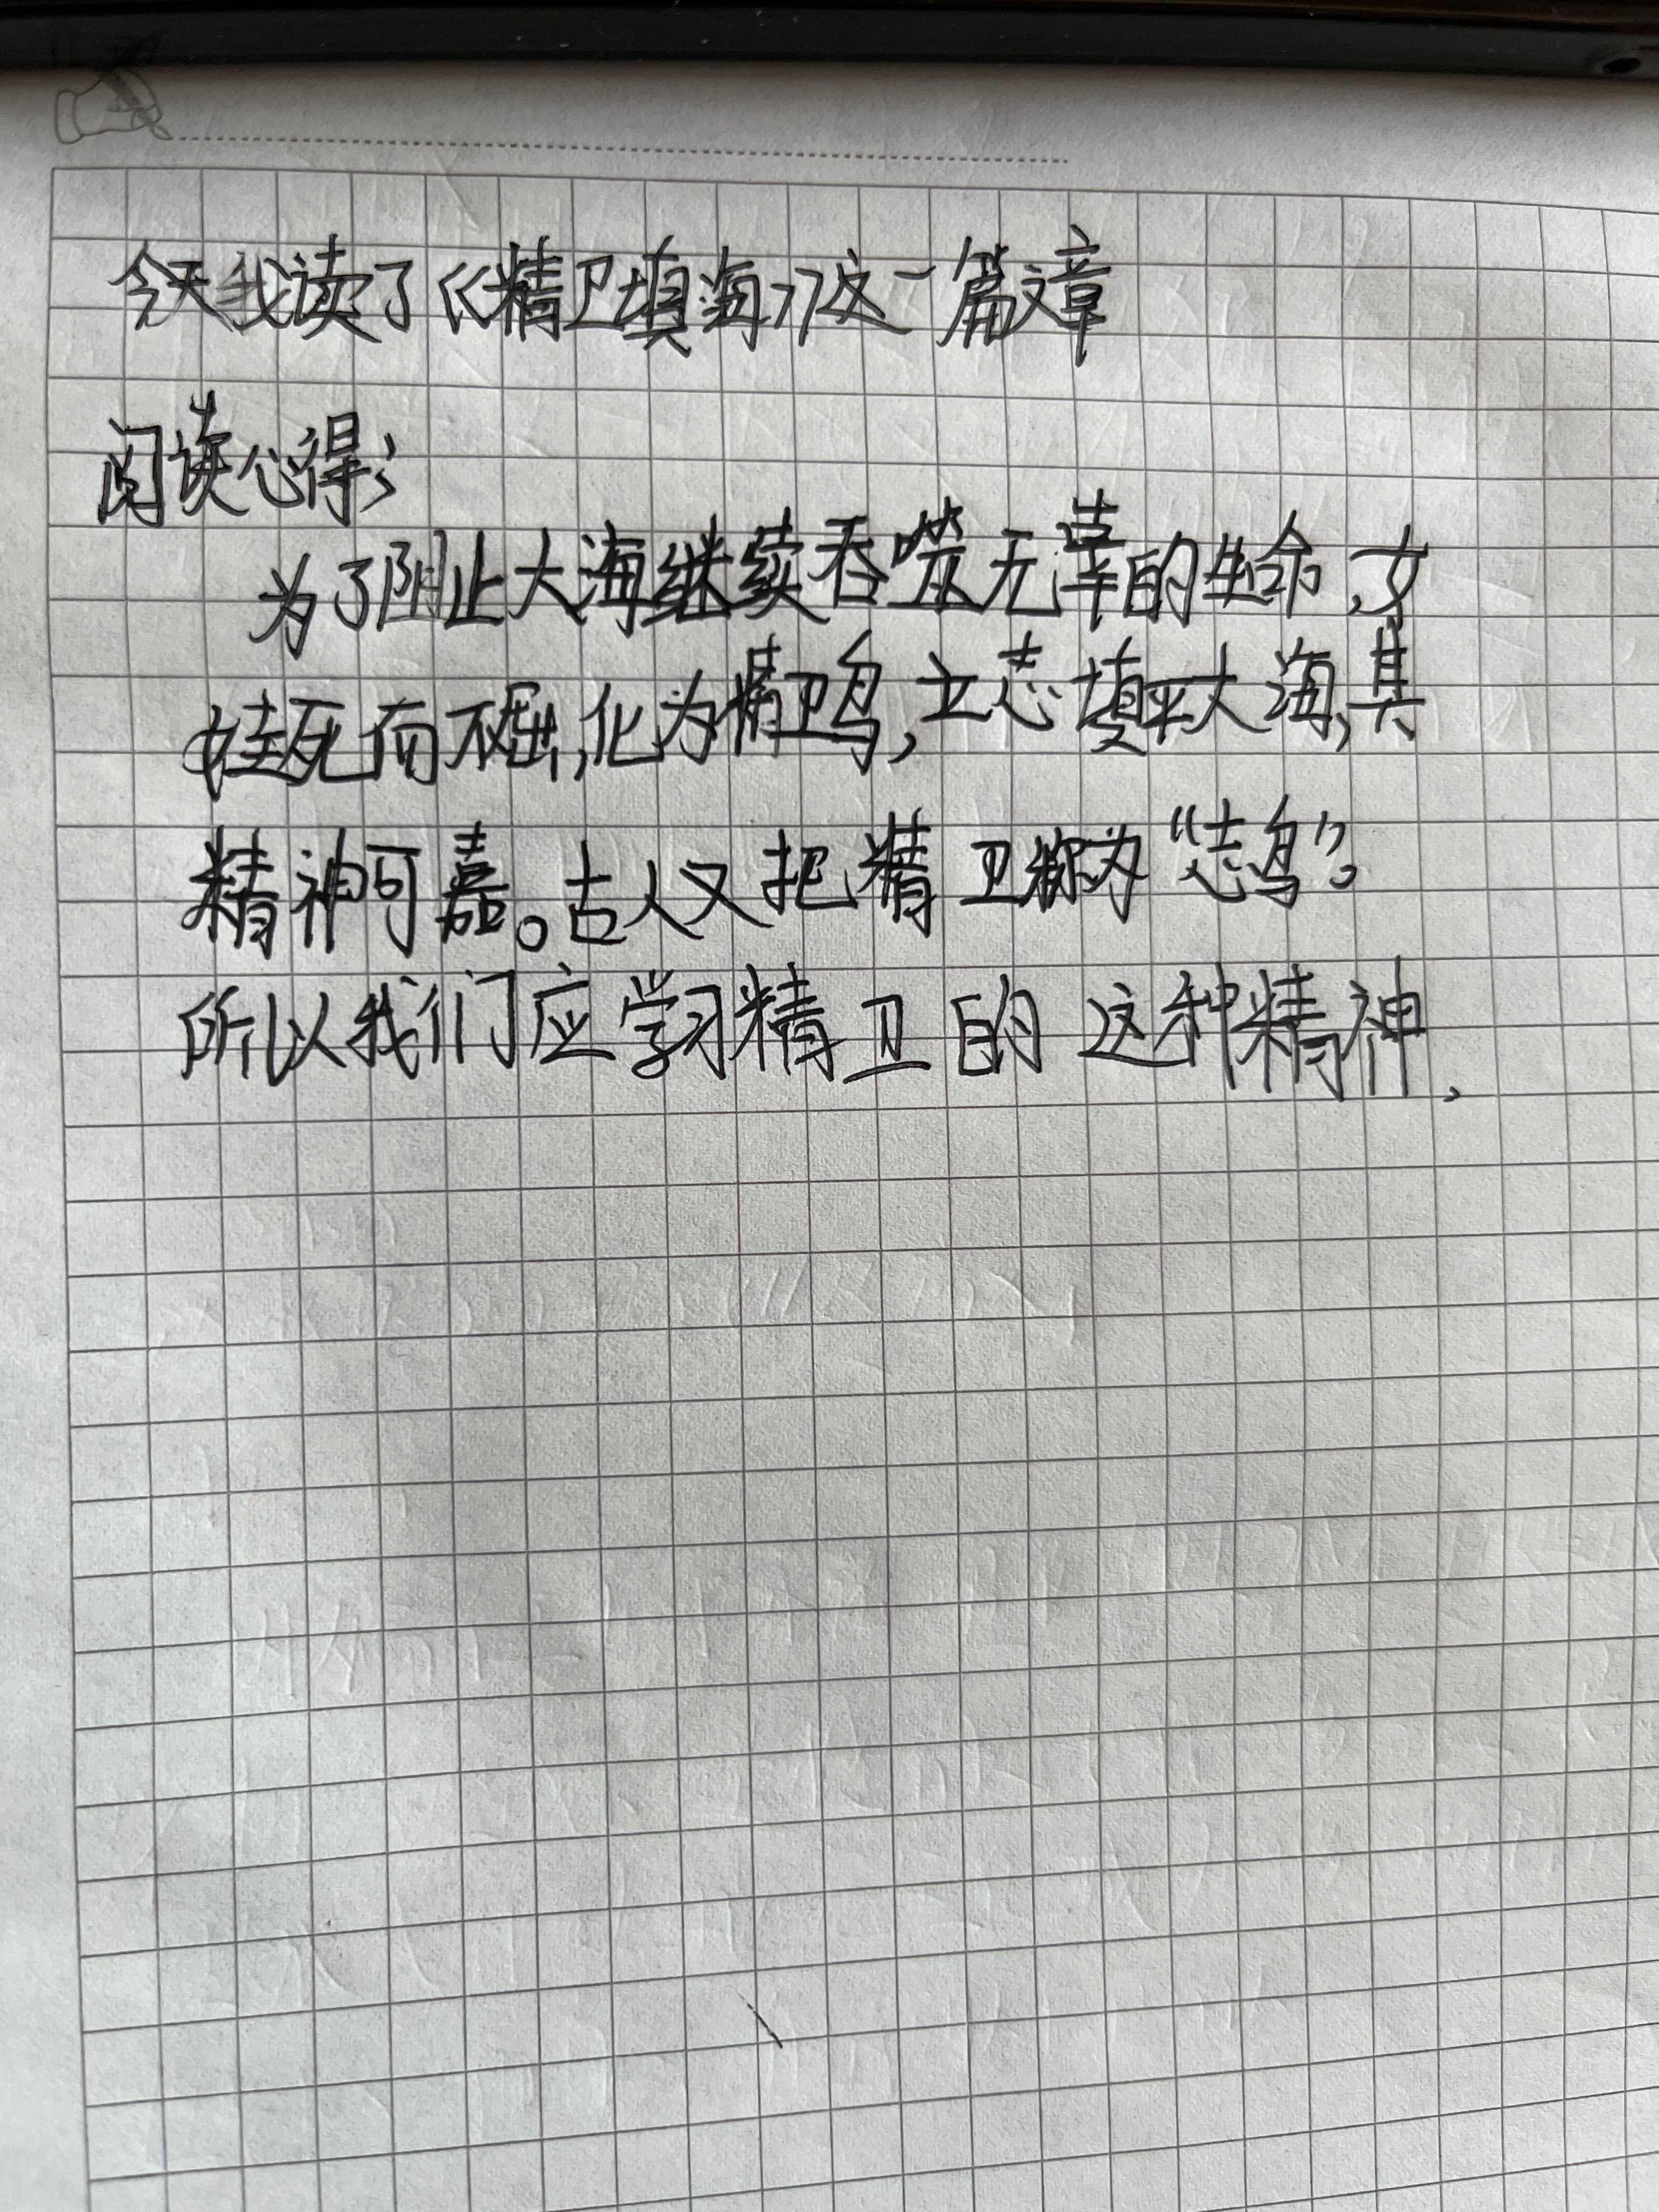 今天我读了《精卫填海》这一篇章
阅读心得:
为了阻止大海继续吞噬无辜的生命,女
娃死而不屈,化为精卫鸟,立志填平大海,其
精神可嘉。古人又把精卫称为“志鸟”。
所以我们应学习精卫的这种精神、